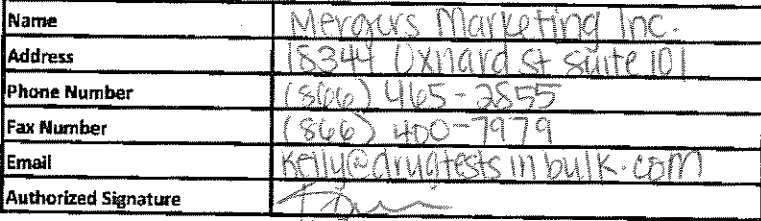 Name Mergers Marketing Inc.
Address 18344 Oxnard St suite 101
Phone Number (866) 465-2855
Fax Number (866) 400-7979
Email Kelly@drugtestsinbulk.com
Authorized Signature